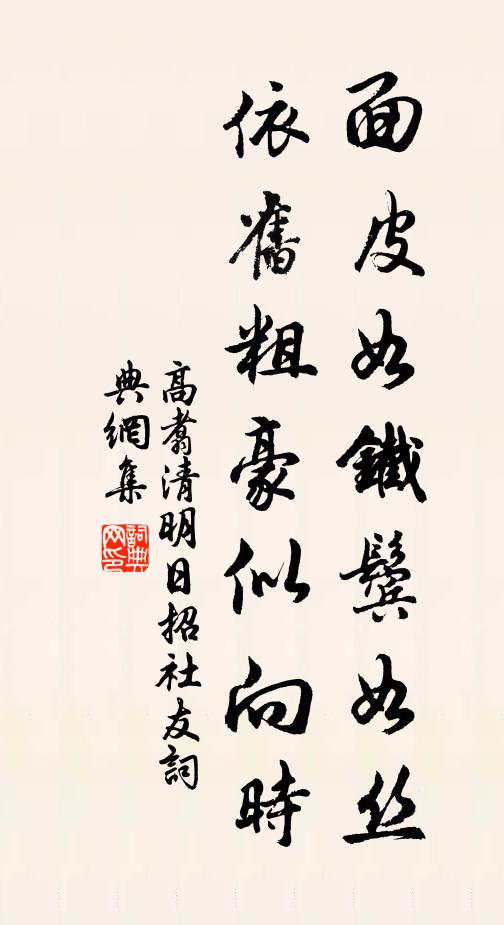 面皮如鐵鬢如丝
依舊粗豪似向時
高翥清明日招社友詞
典網集
詞典网印